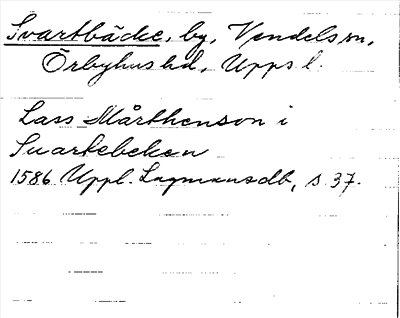 Svartbäcke, by, Vendels sn,
Örbyhus hd, Upps l.
Lass Mårthenson i
Suartebeken
1586 Uppl. Lagmansdb, s. 37.